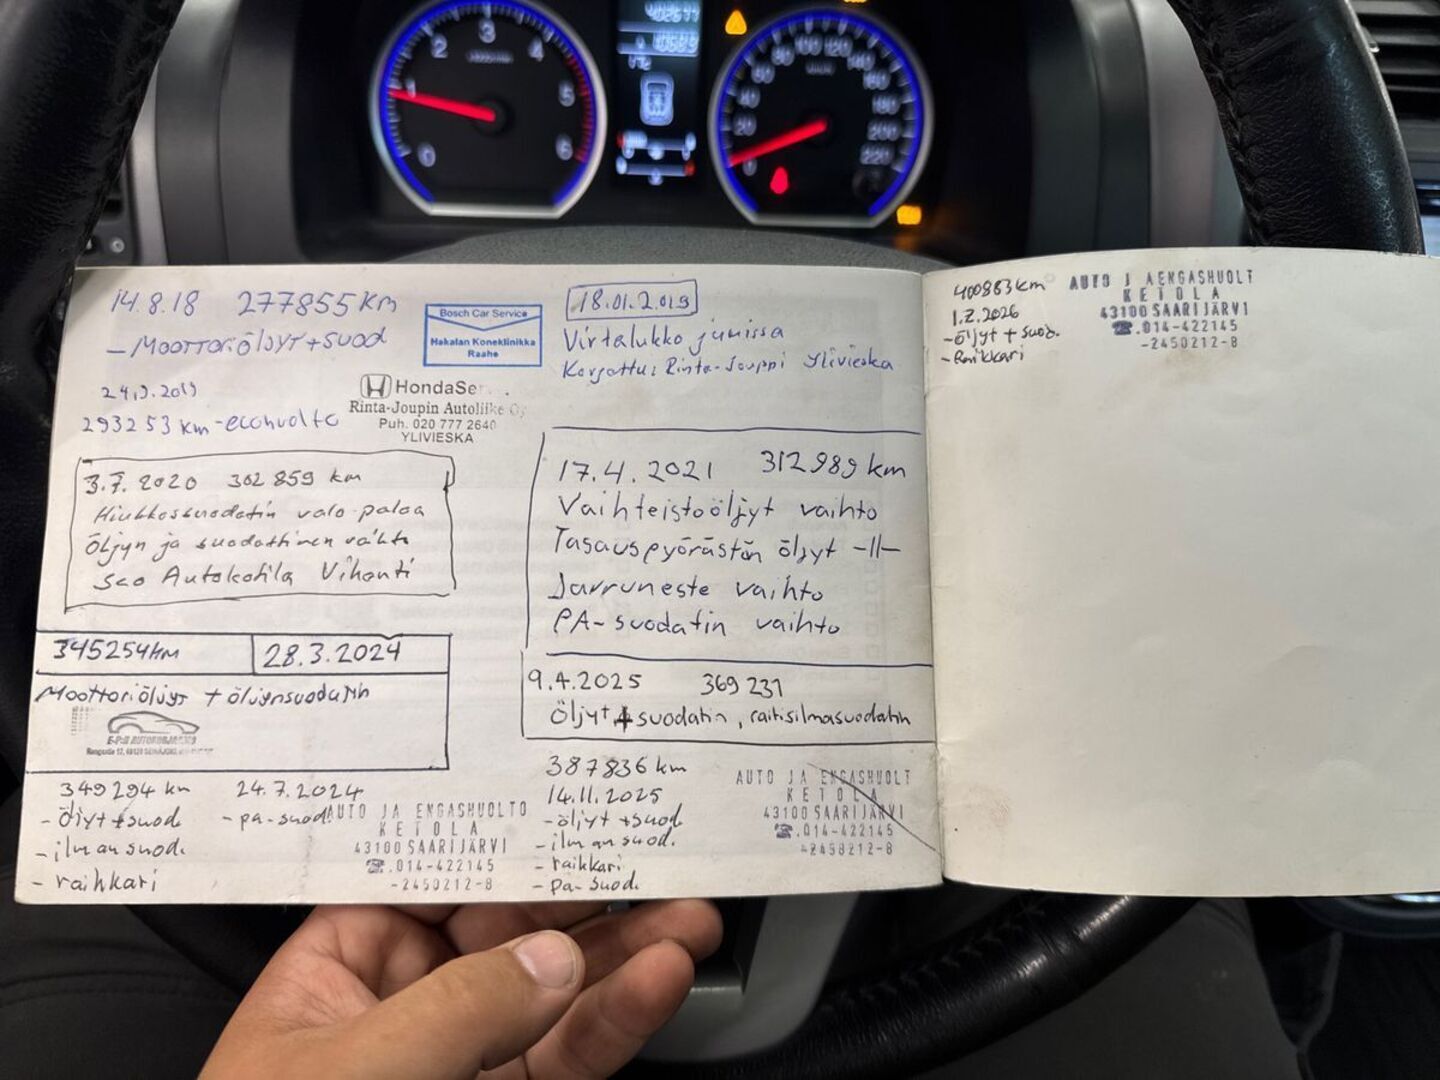 14.8.18 277855 km
- Moottoriöljyt + suod
Bosch Car Service
Hakalan Koneklinikka
Raahe
24.9.2019
293253 km - econuolto
HondaSer
Rinta-Joupin Autoliike Oy
Puh. 020 777 2640
YLIVIESKA
3.7.2020 302 859 km
Hiukkossuodatin valo paloa
Öljyn ja suodattimen vaihto
S&O Autokotila Vihanti
345254km 28.3.2024
Moottoriöljyt + öljynsuodatin
349294 km 24.7.2024
- öljyt + suod. - pa-suod.
- ilman suod.
- raikkari
AUTO JA ENGASHUOLTO
KETOLA
43100 SAARIJÄRVI
☎.014-422145
-2450212-8
18.01.2019
Virtalukko jumissa
Korjattu: Rinta-Jouppi Ylivieska
17.4.2021 312989 km
Vaihteistoöljyt vaihto
Tasauspyörästön öljyt -ll-
Jarruneste vaihto
PA-suodatin vaihto
9.4.2025 369 231
Öljyt + suodatin, raitisilmasuodatin
387836 km
14.11.2025
- öljyt + suod.
- ilman suod.
- raikkari
- pa-suod.
AUTO JA ENGASHUOLT
KETOLA
43100 SAARIJÄRVI
☎.014-422145
-2450212-8
400883 km
1.2.2026
- öljyt + suod.
- Raikkari
AUTO J AENGASHUOLT
KETOLA
43100 SAARIJÄRVI
☎.014-422145
-2450212-8
0 1 2 3 4 5 6
0 20 40 60 80 100 120 140 160 180 200 220